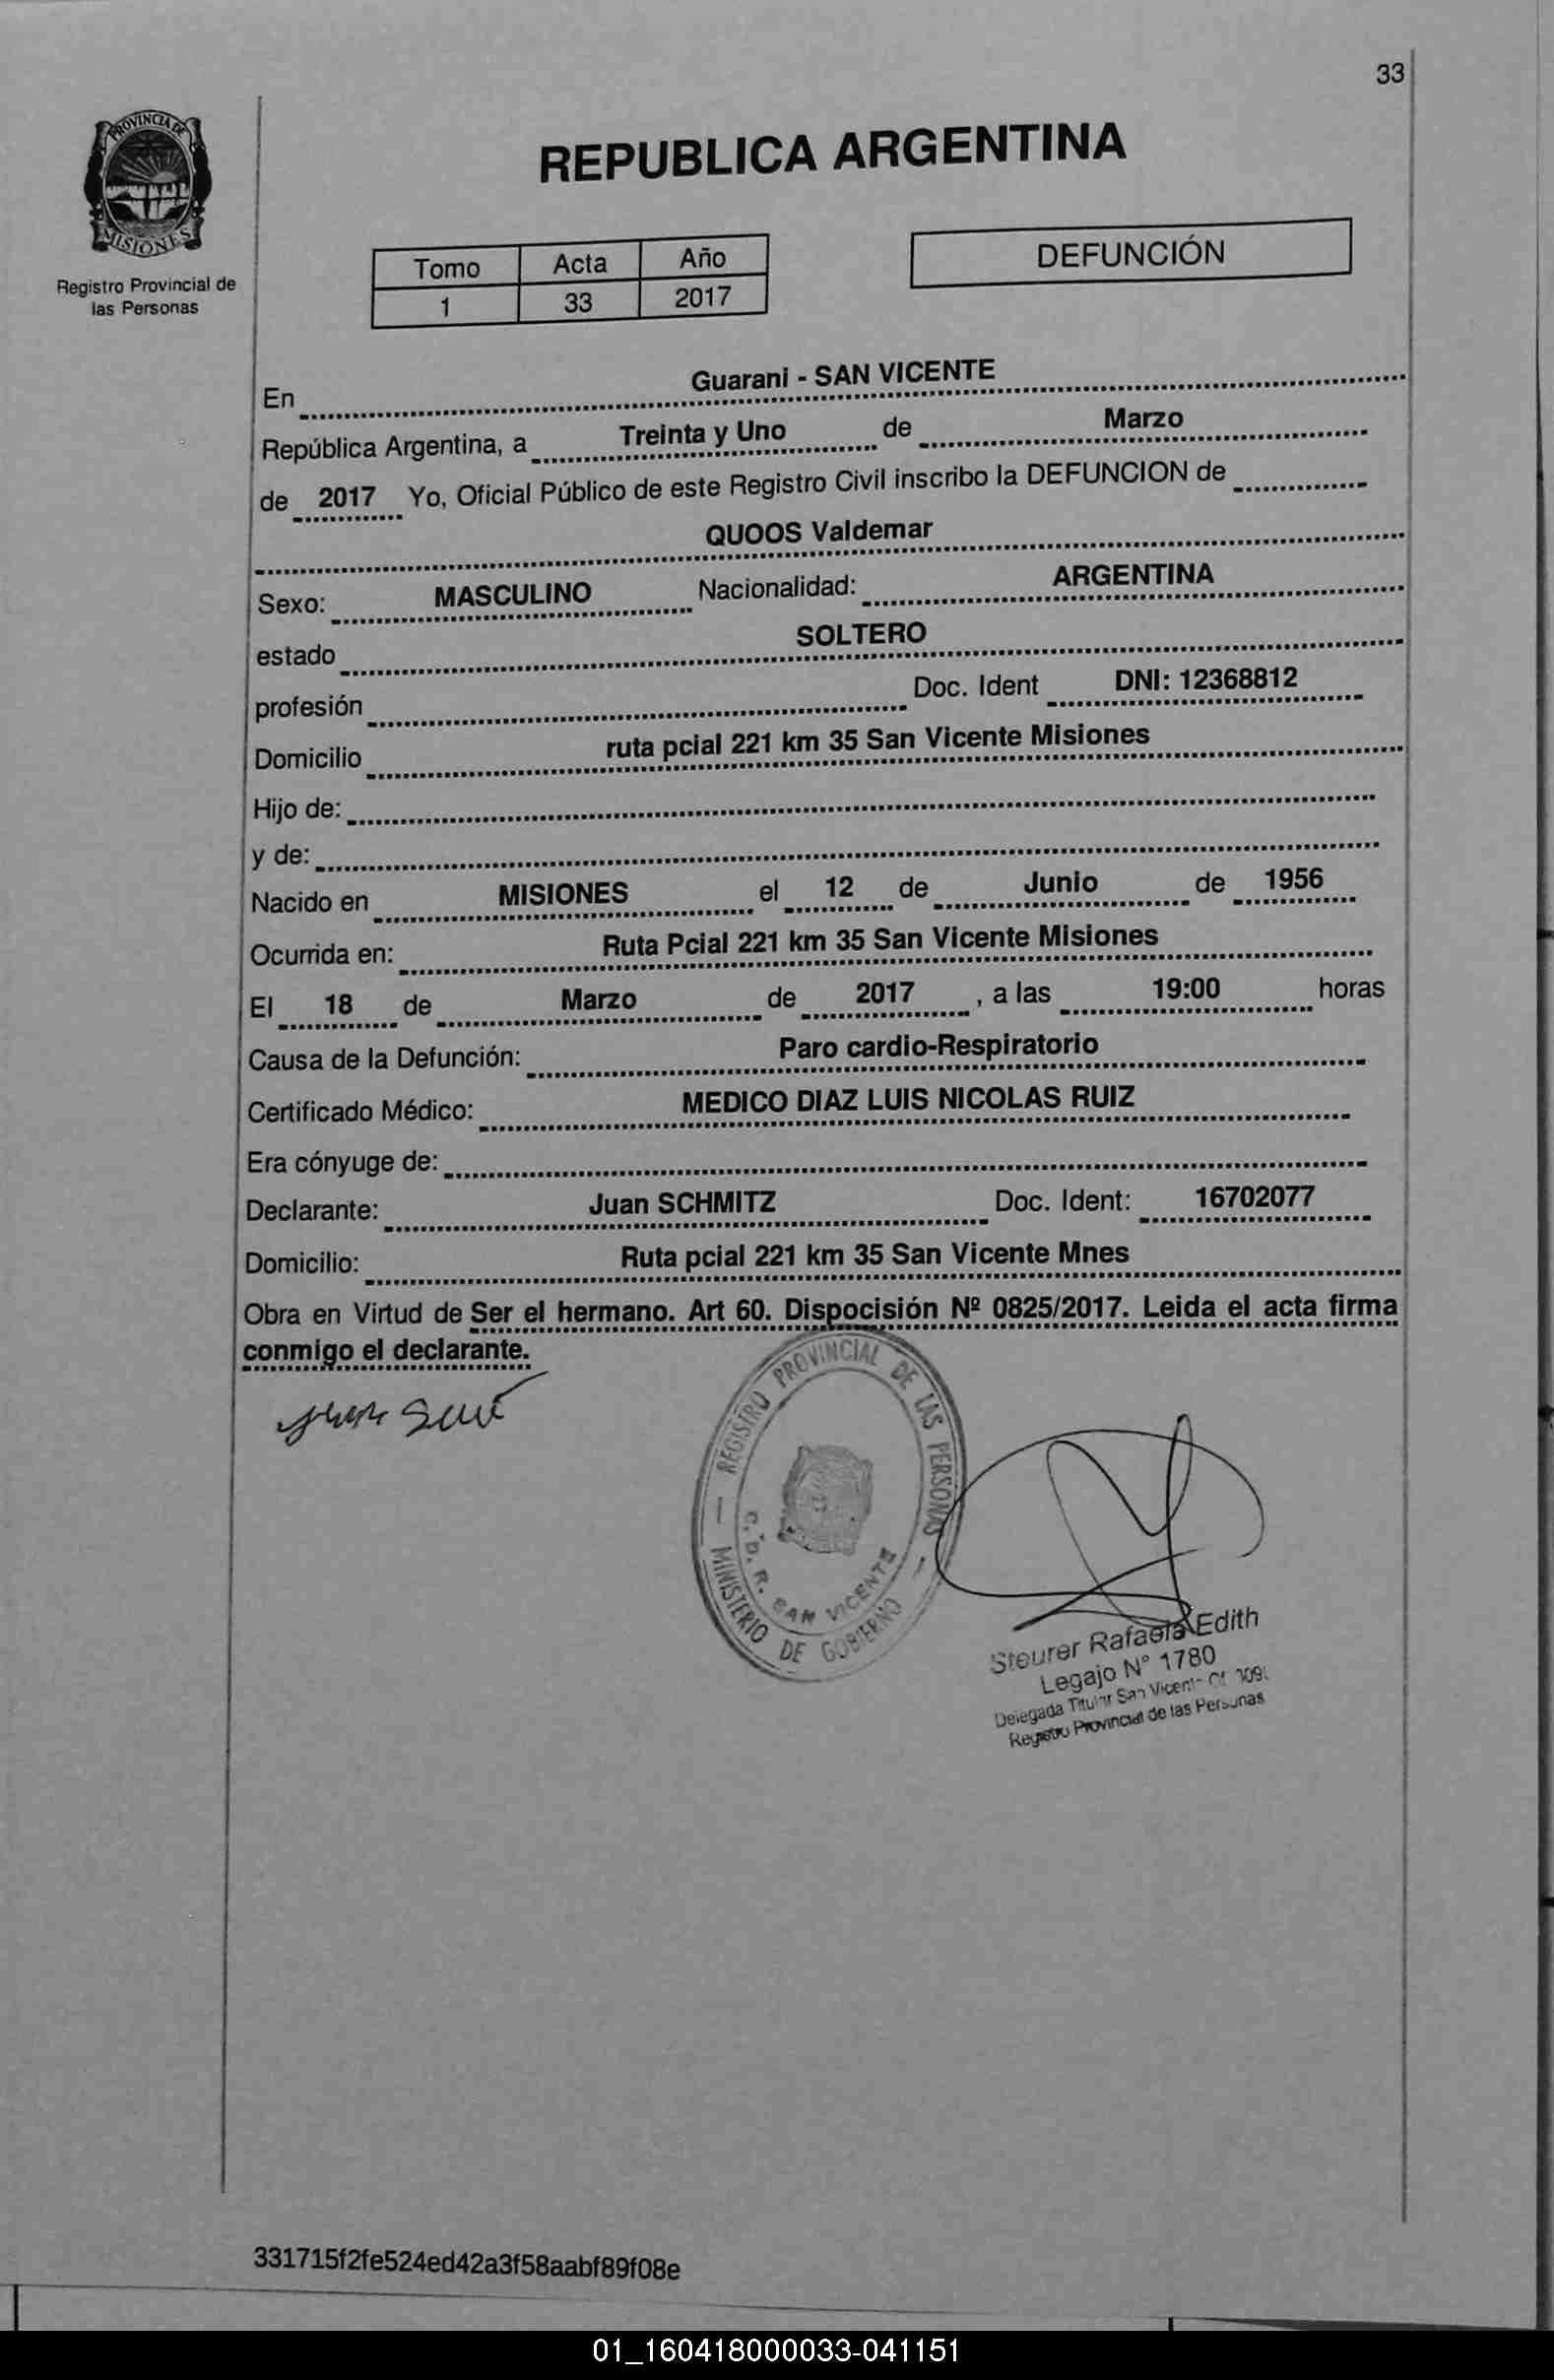 33
PROVINCIA DE
MISIONES
Registro Provincial de
las Personas
REPUBLICA ARGENTINA
Tomo Acta Año
1 33 2017
DEFUNCIÓN
En Guarani - SAN VICENTE
República Argentina, a Treinta y Uno de Marzo
de 2017 Yo, Oficial Público de este Registro Civil inscribo la DEFUNCION de
QUOOS Valdemar
Sexo: MASCULINO Nacionalidad: ARGENTINA
estado SOLTERO
profesión Doc. Ident DNI: 12368812
Domicilio ruta pcial 221 km 35 San Vicente Misiones
Hijo de:
y de:
Nacido en MISIONES el 12 de Junio de 1956
Ocurrida en: Ruta Pcial 221 km 35 San Vicente Misiones
El 18 de Marzo de 2017 , a las 19:00 horas
Causa de la Defunción: Paro cardio-Respiratorio
Certificado Médico: MEDICO DIAZ LUIS NICOLAS RUIZ
Era cónyuge de:
Declarante: Juan SCHMITZ Doc. Ident: 16702077
Domicilio: Ruta pcial 221 km 35 San Vicente Mnes
Obra en Virtud de Ser el hermano. Art 60. Dispocisión Nº 0825/2017. Leida el acta firma
conmigo el declarante.
REGISTRO PROVINCIAL DE LAS PERSONAS
C. D. R. SAN VICENTE
MINISTERIO DE GOBIERNO
Steurer Rafaela Edith
Legajo N° 1780
Delegada Titular San Vicente
Registro Provincial de las Personas
331715f2fe524ed42a3f58aabf89f08e
01_160418000033-041151